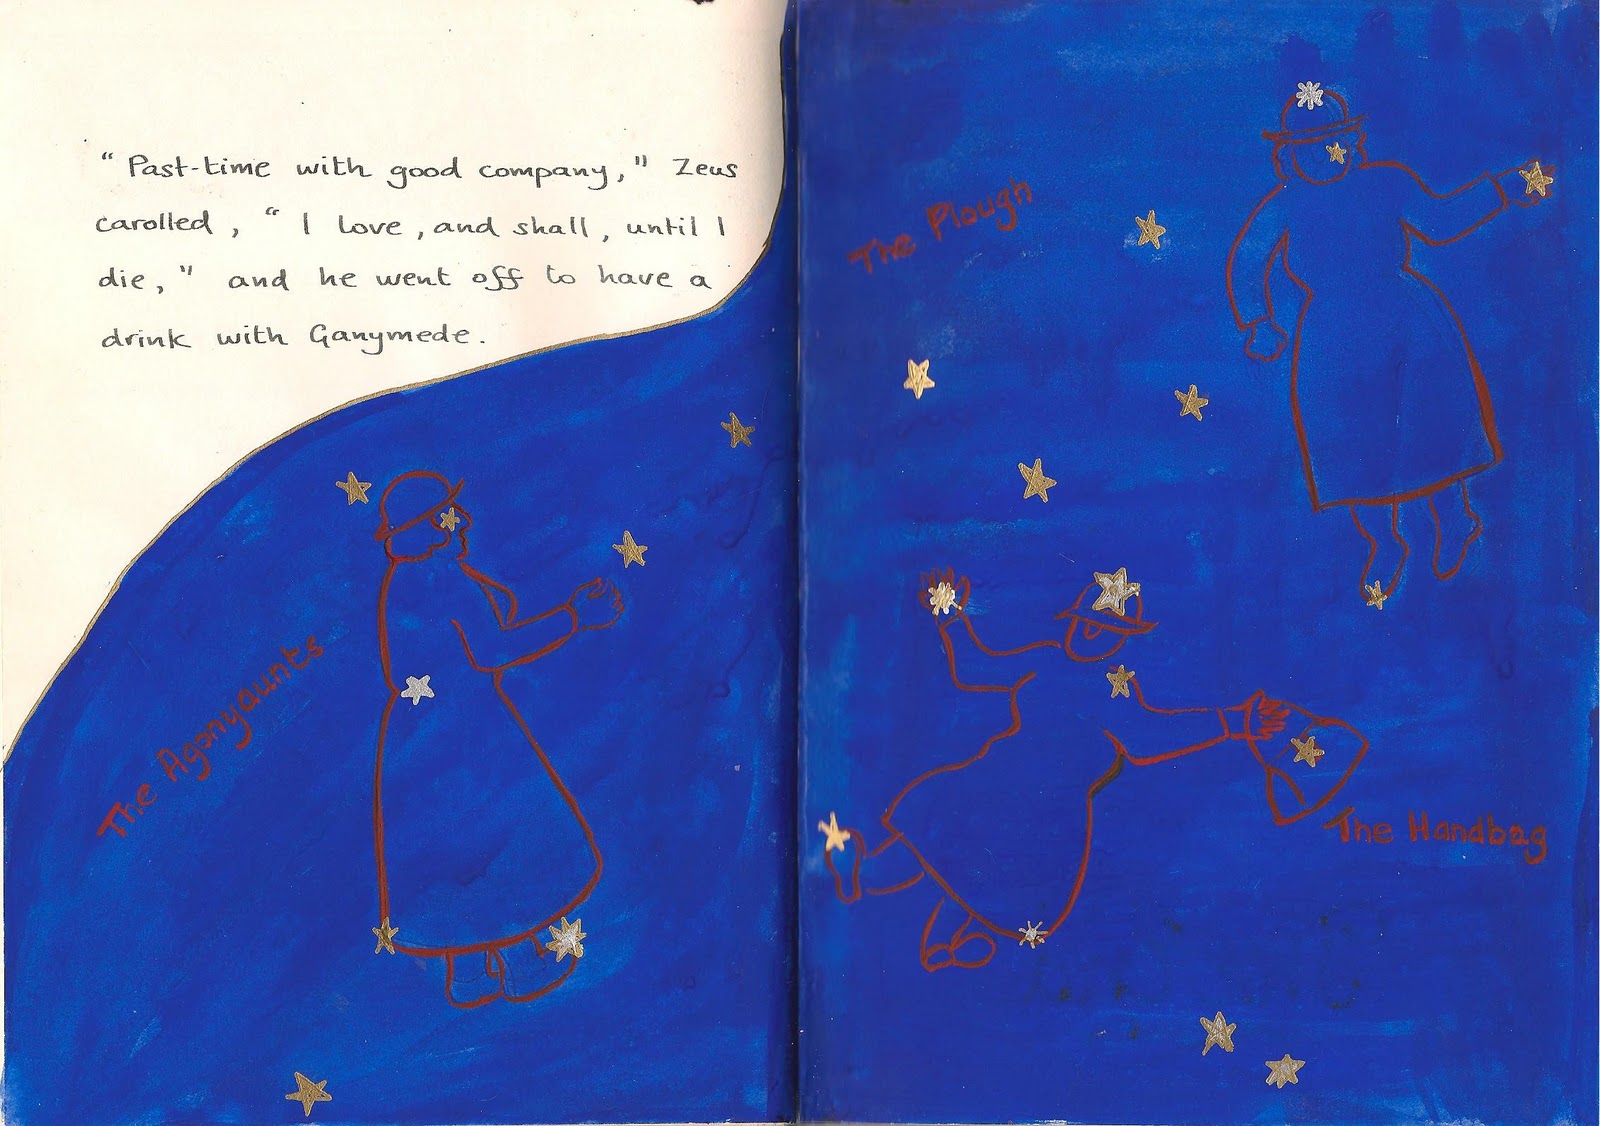 “Past-time with good company,” Zeus
carolled, “I love, and shall, until I
die,” and he went off to have a
drink with Ganymede.
The Agonyaunts
The Plough
The Handbag